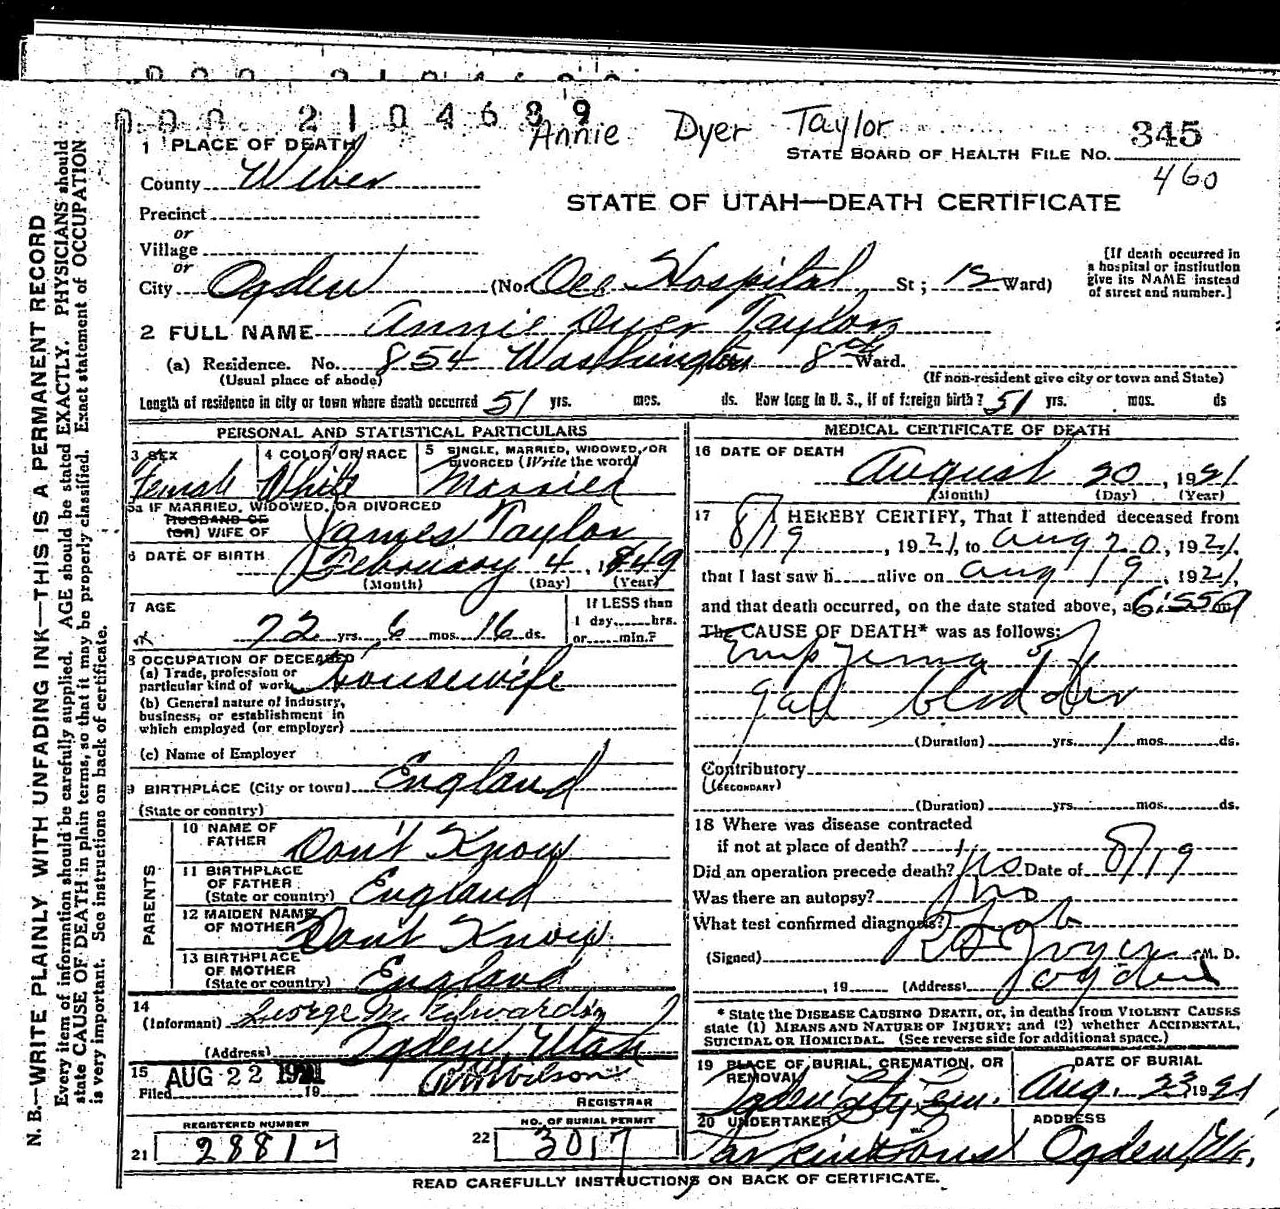 000 2104689
Annie Dyer Taylor
STATE BOARD OF HEALTH FILE NO. 345
460
1 PLACE OF DEATH
County Weber
STATE OF UTAH—DEATH CERTIFICATE
Precinct
or
Village
or
City Ogden (No. Dee Hospital St; Ward)
[If death occurred in
a hospital or institution
give its NAME instead
of street and number.]
2 FULL NAME Annie Dyer Taylor
(a) Residence. No. 854 Washington 8 Ward.
(Usual place of abode) (If non-resident give city or town and State)
Length of residence in city or town where death occurred 51 yrs. mos. ds. How long in U. S., if of foreign birth? 51 yrs. mos. ds
PERSONAL AND STATISTICAL PARTICULARS
3 SEX 4 COLOR OR RACE 5 SINGLE, MARRIED, WIDOWED, OR
DIVORCED (Write the word)
Female White Married
5a IF MARRIED, WIDOWED, OR DIVORCED
HUSBAND OF
(OR) WIFE OF James Taylor
6 DATE OF BIRTH February 4, 1849
(Month) (Day) (Year)
7 AGE If LESS than
1 day hrs.
72 yrs. 6 mos. 16 ds. or min.?
8 OCCUPATION OF DECEASED
(a) Trade, profession or
particular kind of work Housewife
(b) General nature of industry,
business, or establishment in
which employed (or employer)
(c) Name of Employer
9 BIRTHPLACE (City or town) England
(State or country)
PARENTS
10 NAME OF
FATHER Don't Know
11 BIRTHPLACE
OF FATHER
(State or country) England
12 MAIDEN NAME
OF MOTHER Don't Know
13 BIRTHPLACE
OF MOTHER
(State or country) England
14
(Informant) George M.
(Address) Ogden, Utah
15
Filed AUG 22 1921 19
REGISTRAR
REGISTERED NUMBER NO. OF BURIAL PERMIT
21 2881 22 3017
MEDICAL CERTIFICATE OF DEATH
16 DATE OF DEATH
August 20, 1921
(Month) (Day) (Year)
17 I HEREBY CERTIFY, That I attended deceased from
8/19, 1921, to Aug 20, 1921.
that I last saw h alive on Aug 19, 1921,
and that death occurred, on the date stated above, at 6:55
The CAUSE OF DEATH* was as follows:
Empyema of
gall bladder
(Duration) yrs. 1 mos. ds.
Contributory
(SECONDARY)
(Duration) yrs. mos. ds.
18 Where was disease contracted
if not at place of death?
Did an operation precede death? yes Date of 8/19
Was there an autopsy? no
What test confirmed diagnosis?
(Signed) M. D.
, 19 (Address) Ogden
* State the DISEASE CAUSING DEATH, or, in deaths from VIOLENT CAUSES
state (1) MEANS AND NATURE OF INJURY; and (2) whether ACCIDENTAL,
SUICIDAL OR HOMICIDAL. (See reverse side for additional space.)
19 PLACE OF BURIAL, CREMATION, OR
REMOVAL DATE OF BURIAL
Ogden City Cem. Aug. 23 1921
20 UNDERTAKER ADDRESS
Ogden, Ut.
READ CAREFULLY INSTRUCTIONS ON BACK OF CERTIFICATE.
N. B.—WRITE PLAINLY WITH UNFADING INK—THIS IS A PERMANENT RECORD
Every item of information should be carefully supplied. AGE should be stated EXACTLY. PHYSICIANS should
state CAUSE OF DEATH in plain terms, so that it may be properly classified. Exact statement of OCCUPATION
is very important. See instructions on back of certificate.